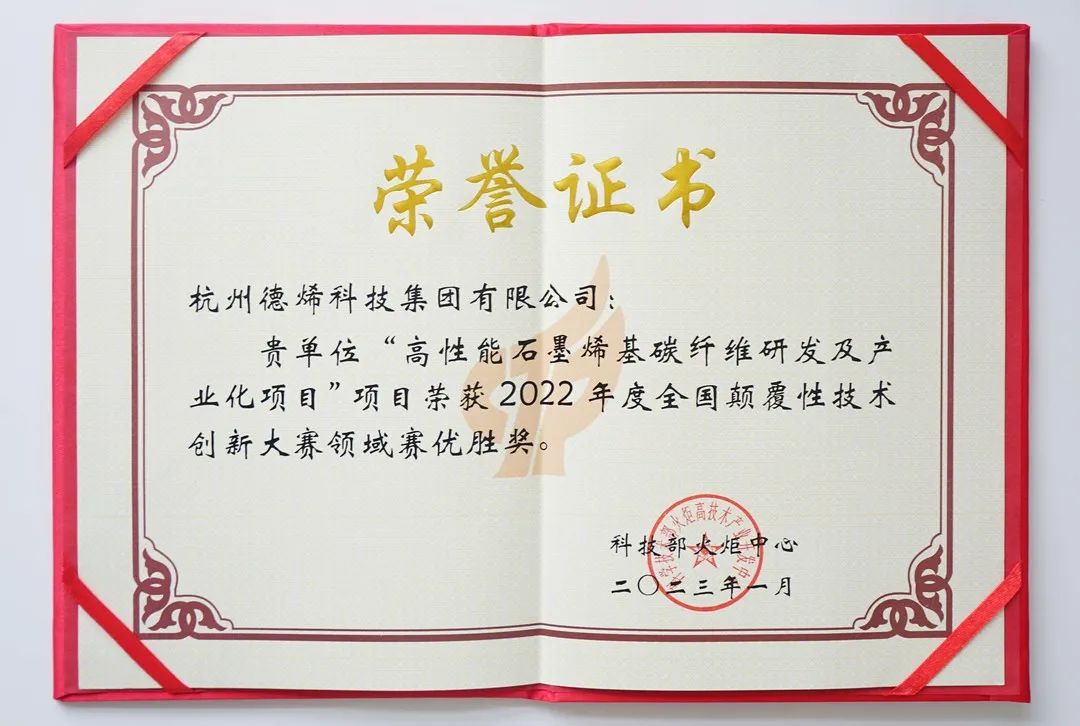 荣誉证书
杭州德烯科技集团有限公司：
贵单位“高性能石墨烯基碳纤维研发及产
业化项目”项目荣获2022年度全国颠覆性技术
创新大赛领域赛优胜奖。
科技部火炬中心
二〇二三年一月